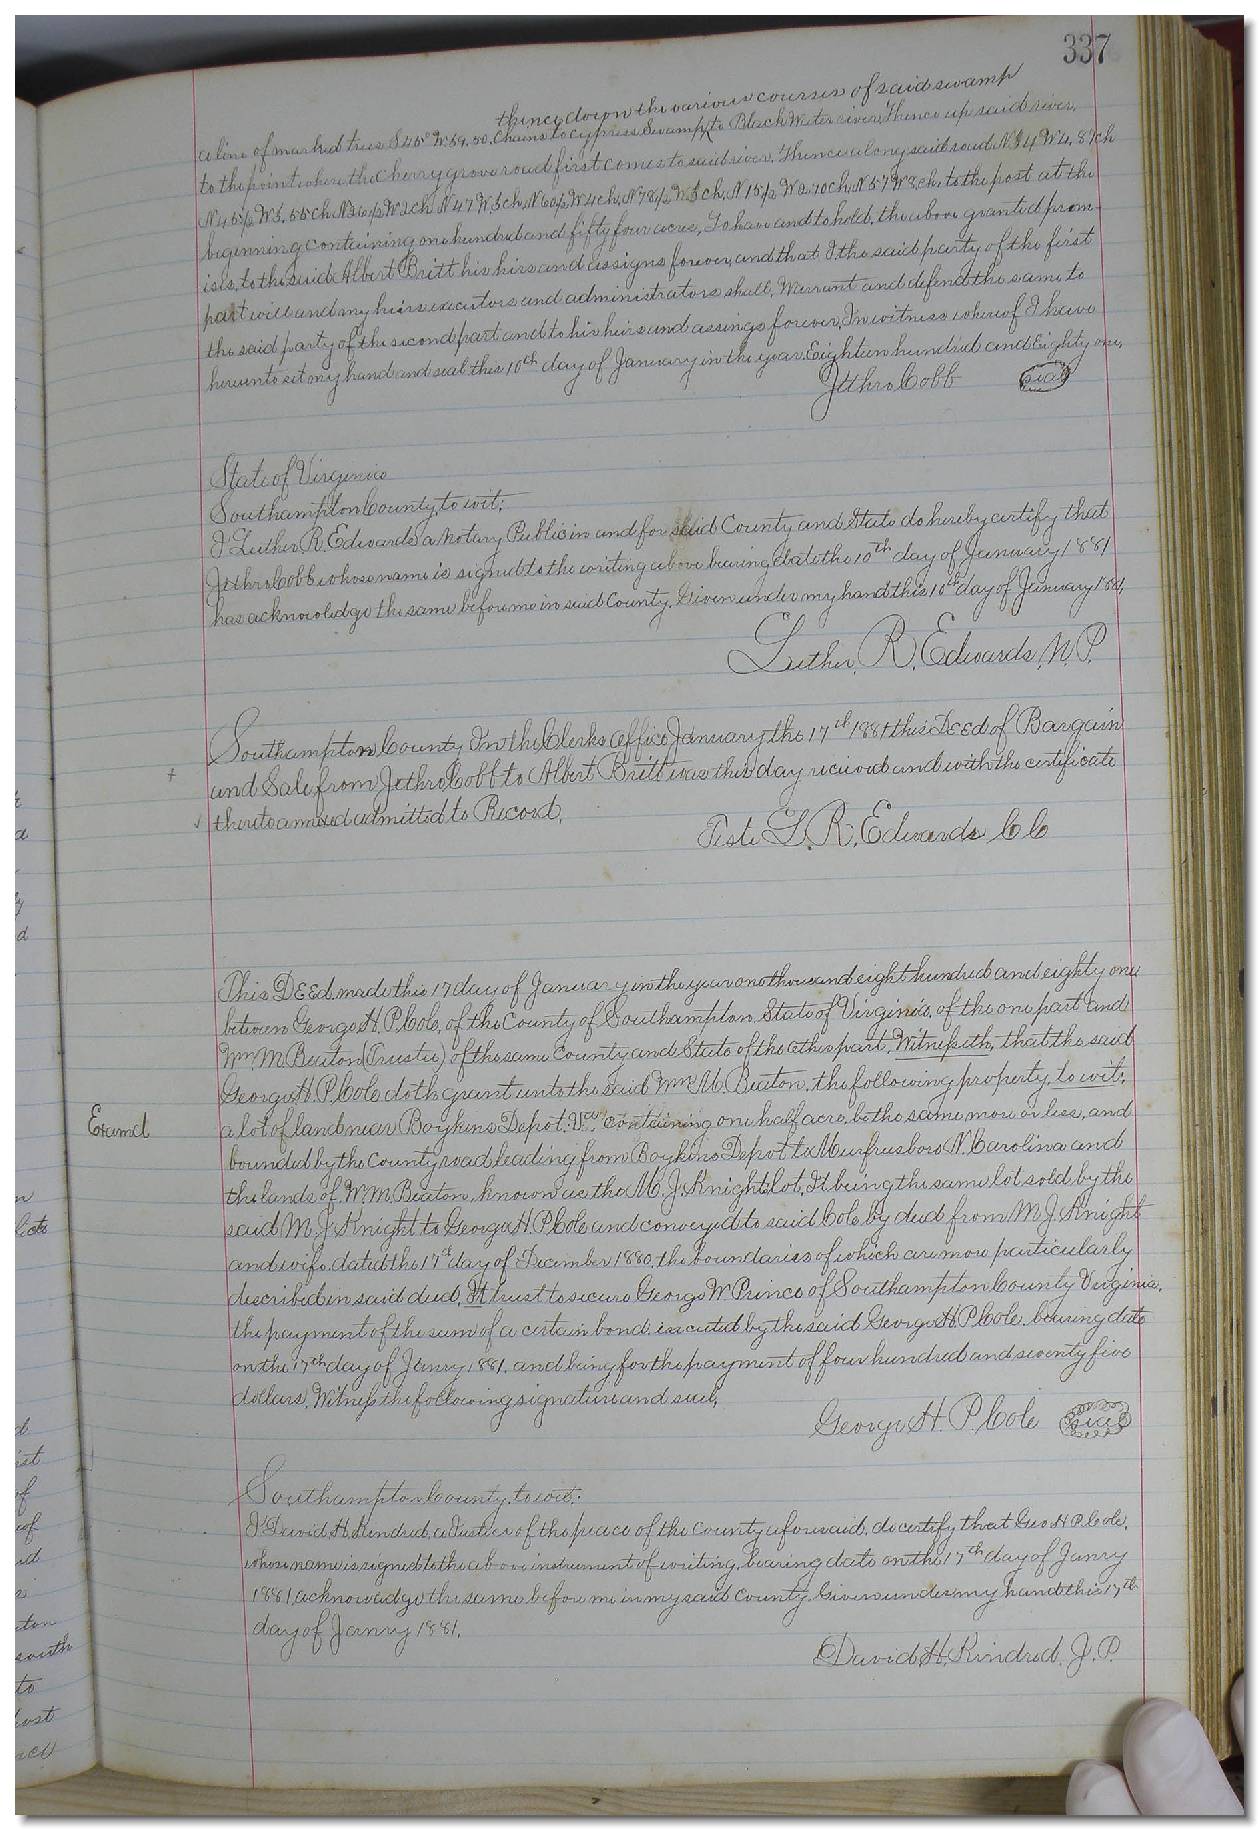 337
thence down the various courses of said swamp
a line of marked trees S 45° W 59,50, Chains to Cypress Swamp to Black Water river, Thence up said river,
to the point where the Cherry grove road first comes to said river, Thence along said road N 34 W 4,87 ch
N 45½ W 5,55 ch N 36½ W 2 ch N 47 W 5 ch, N 60½ W 4 ch, N 78½ W 5 ch, N 15½ W 2.70 ch, N 57 W 8 ch, to the post at the
beginning containing one hundred and fifty four acres, To have and to hold, the above granted prem-
isis, to the said Albert Britt his hirs and assigns forever, and that I the said party of the first
part will and my heirs executors and administrators shall, Warrant and defend the same to
the said party of the second part and to his heirs and assings forever, In witness whereof I have
hereunto set my hand and seal this 10th day of January in the year Eighteen hundred and Eighty one,
Jethro Cobb seal
State of Virginia
Southampton County, to wit;
I Luther R. Edwards a Notary Public in and for said County and State do hereby certify that
Jethro Cobb whose name is signed to the writing above bearing date the 10th day of January 1881
has acknowledge the same before me in said County. Given under my hand this 10th day of January 1881,
Luther, R, Edwards, N. P.
Southampton County In the Clerks office January the 17th 1881 this DEEd of Bargain
and Sale from Jethro Cobb to Albert Britt was this day recieved and with the certificate
thereto annexed admitted to Record,
Teste L. R. Edwards C C
This DEEd, made this 17 day of January in the year one thousand eight hundred and eighty one
between George H. P. Cole, of the County of Southampton State of Virginia, of the one part and
Wm, M Beaton (Trustee) of the same County and State of the other part, Witnesseth, that the said
George H. P. Cole doth grant unto the said Wm M. Beaton, the following property, to wit,
Examd
a lot of land near Boykins Depot. Va. containing one half acre, be the same more or less, and
bounded by the County road leading from Boykins Depot to Murfreesboro N. Carolina and
the lands of W. M. Beaton, known as the M. J. Knight lot, It being the same lot sold by the
said M. J. Knight to George H P. Cole and conveyed to said Cole by deed from M. J. Knight
and wife dated the 17th day of December 1880, the boundaries of which are more particularly
described in said deed, In trust to secure George W Prince of Southampton County Virginia,
the payment of the sum of a certain bond executed by the said George H. P. Cole, bearing date
on the 17th day of Janry 1881, and being for the payment of four hundred and seventy five
dollars, Witness the following signature and seal,
George H. P. Cole seal
Southampton County, to wit;
I David H. Kindred, a Justice of the peace of the County aforesaid, do certify that Geo H P. Cole,
whose name is signed to the above instrument of writing, bearing date on the 17th day of Janry
1881, acknowadge the same before me in my said County Given under my hand this 17th
day of Janry 1881.
David H. Kindred, J. P.